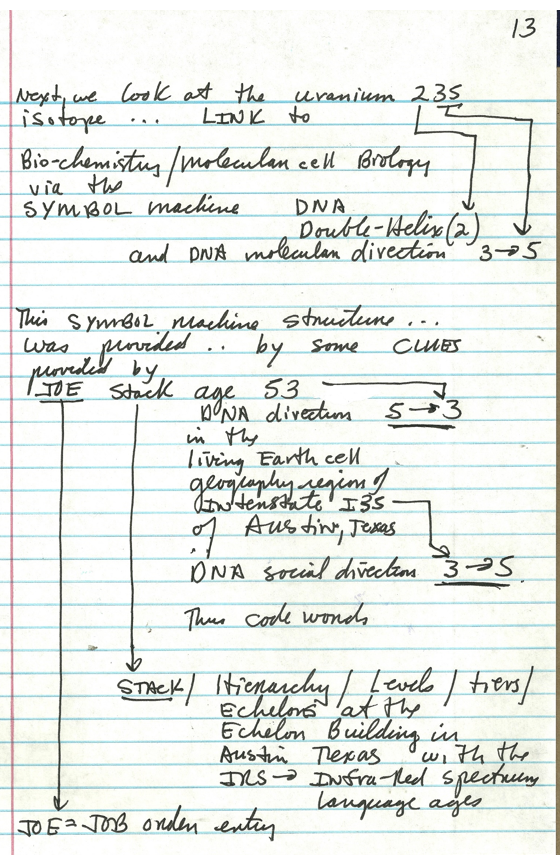 13
Next, we look at the uranium 235
isotope ... LINK to
Bio-chemistry/molecular cell Biology
via the
SYMBOL machine DNA
Double-Helix (2)
and DNA molecular direction 3→5
This SYMBOL machine structure ...
was provided .. by some CLUES
provided by
JOE Stack age 53
DNA direction 5→3
in the
living Earth cell
geography region of
Interstate I35
of Austin, Texas
..
DNA social direction 3→5
Thus code words
STACK/ Hierarchy / Levels / tiers/
Echelons at the
Echelon Building in
Austin Texas with the
IRS → Infra-Red Spectrum
language ages
JOE = JOB order entry